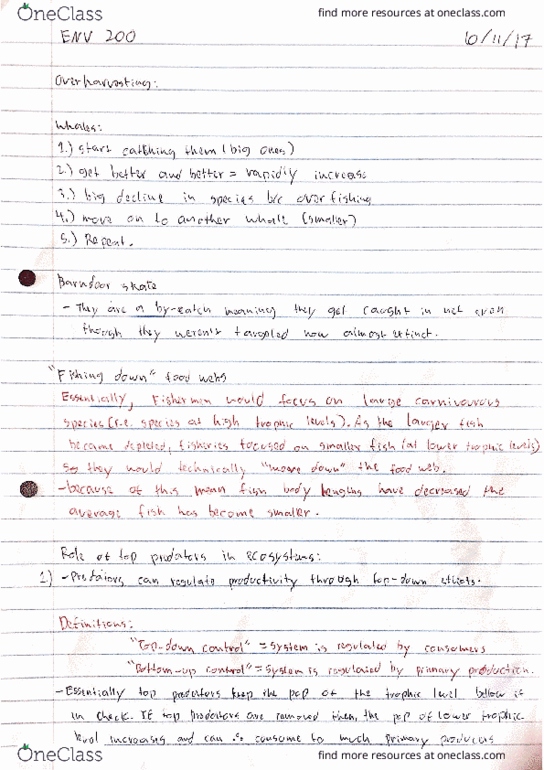 OneClass
find more resources at oneclass.com
ENV 200
10/11/17
Overharvesting:
Whales:
1.) start catching them (big ones)
2.) get better and better = rapidly increase
3.) big decline in species b/c over fishing
4.) move on to another whale (smaller)
5.) Repeat.
Barndoor skate
- They are a by-catch meaning they get caught in net even
though they weren't targeted now almost extinct.
"Fishing down" food webs
Essentially, Fishermen would focus on large carnivorous
species (i.e. species at high trophic levels). As the larger fish
became depleted, fisheries focused on smaller fish (at lower trophic levels)
so they would technically "move down" the food web.
- because of this mean fish body lengths have decreased the
average fish has become smaller.
Role of top predators in ecosystems:
1) - Predators can regulate productivity through top-down effects.
Definitions:
"Top-down control" = system is regulated by consumers
"Bottom-up control" = system is regulated by primary production.
- Essentially top predators keep the pop of the trophic level bellow is
in check. If top predators are removed then, the pop of lower trophic
level increases and can ∴ consume to much primary producers
OneClass
find more resources at oneclass.com